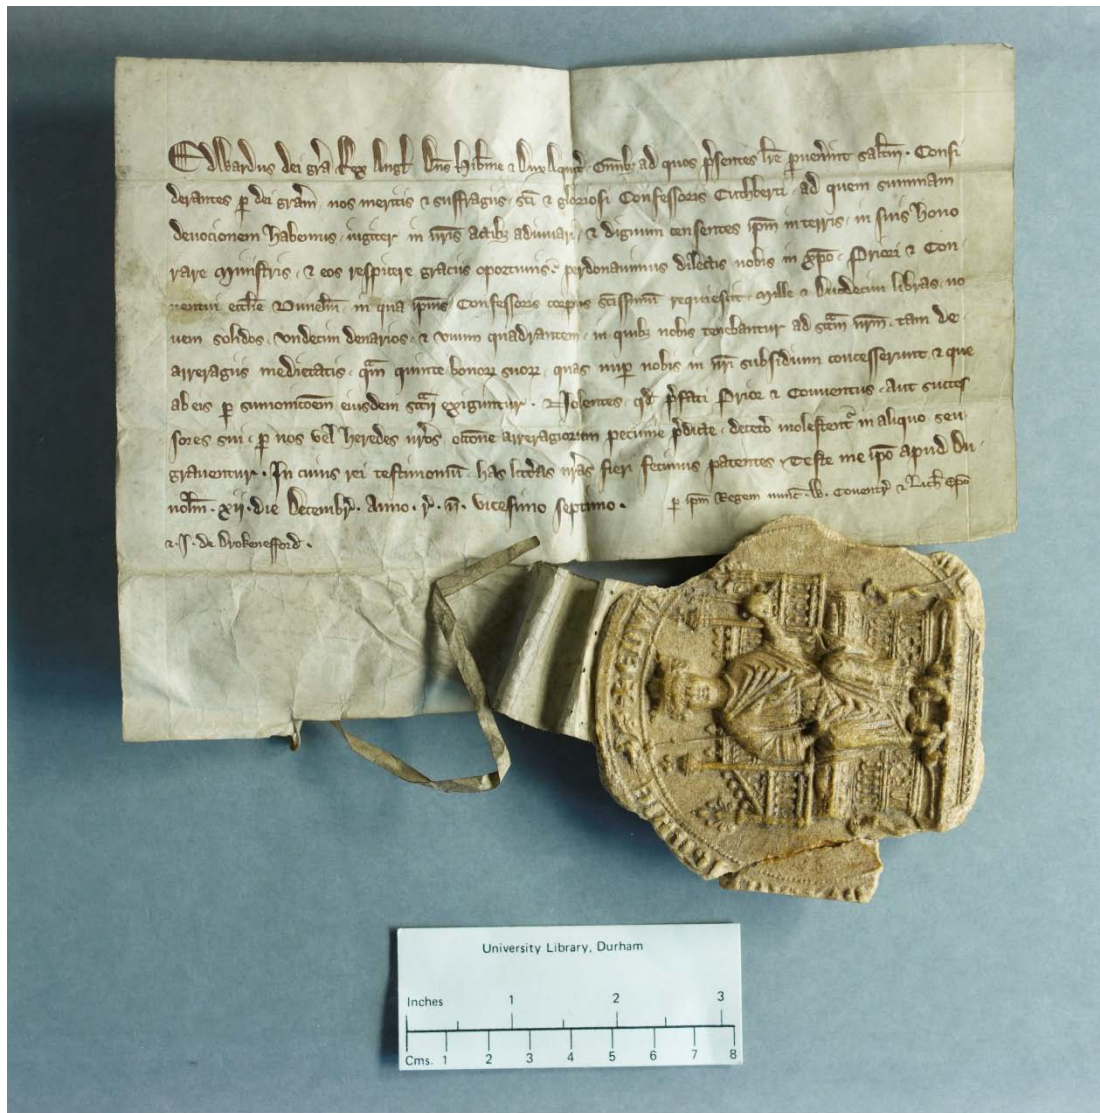 Edwardus dei gra Rex Angl Dns Hibnie & Dux Aquit Omibz ad quos psentes lre pvenint saltm · Consi
derantes p dei gram nos meritis & suffragiis sci & gloriosi Confessoris Cuthberti ad quem summam
devocionem habemus iugiter in nris actibz adiuvari & dignum censentes ipm in terris in suis hono
rare Ministris & eos respicere gracius oportunis pdonavimus dilectis nobis in xpo Priori & Con
ventui ecclie Dunelm in qua ipius Confessoris corpus scissimum requiescit Mille & Duodecim libras no
vem solidos undecim denarios & unum quadrantem in quibz nobis tenebantur ad sccm nrm tam de
arreragiis medietatis qm quinte bonor suor quas nup nobis in nri subsidium concesserunt & que
ab eis p sumonicoem eiusdem sccii exiguntur · Nolentes qd pfati Prior & Conventus aut succes
sores sui p nos vel heredes nros occone arreragiorum pecunie pdicte deceto molestent in aliquo seu
graventur · In cuius rei testimonium has litteras nras fieri fecimus patentes Teste me ipo apud Du
nolm · xij · die Decembr · Anno · r · n · vicesimo septimo · p ipm Regem nunc · W · Coventr & Lich Epo
& · J · de Drokenefford ·
EDW
University Library, Durham
Inches 1 2 3
Cms. 1 2 3 4 5 6 7 8